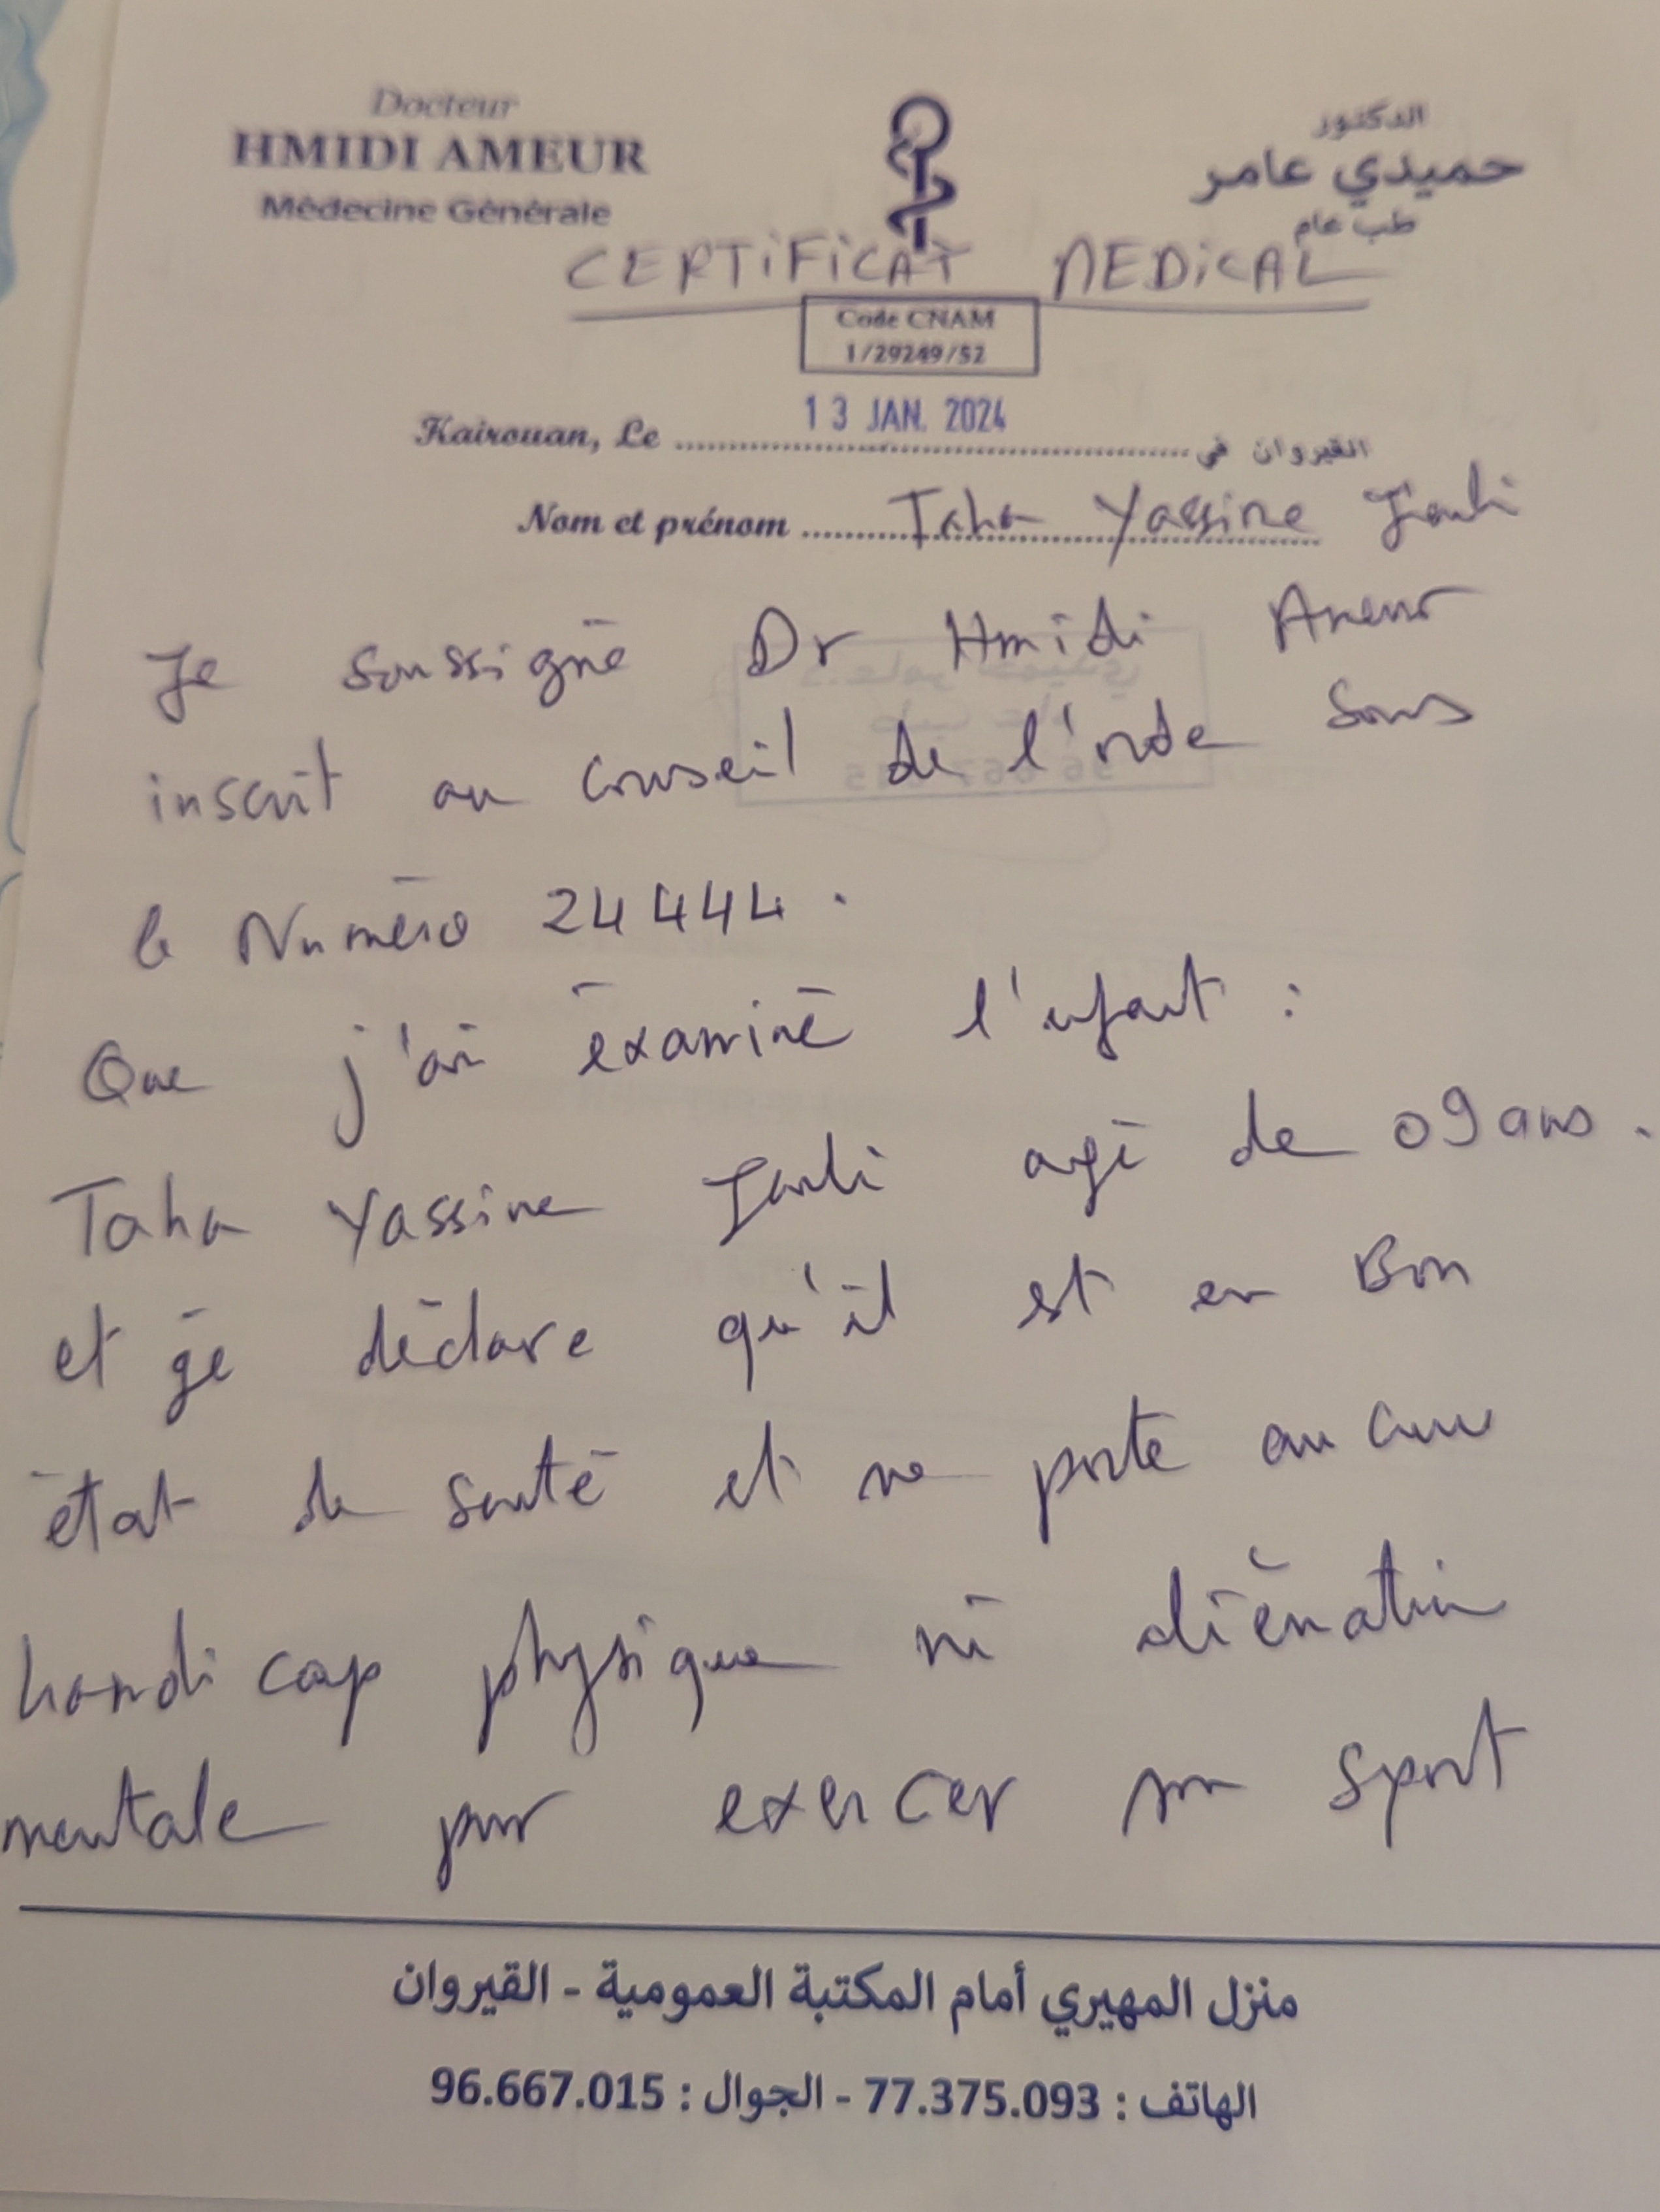 Docteur
HMIDI AMEUR
Médecine Générale
الدكتور
حميدي عامر
طب عام
CERTIFICAT MEDICAL
Code CNAM
1/29249/52
Kairouan, Le 13 JAN. 2024 القيروان في
Nom et prénom Taha Yassine
Je soussigné Dr Hmidi Ameur
inscrit au conseil de l'orde sous
le Numéro 24444.
Que j'ai éxaminé l'enfant :
Taha Yassine agé de 09 ans.
et je déclare qu'il est en Bon
état de santé et ne porte aucun
handicap physique ni
mentale pour exercer son sport
منزل المهيري أمام المكتبة العمومية - القيروان
الهاتف : 77.375.093 - الجوال : 96.667.015